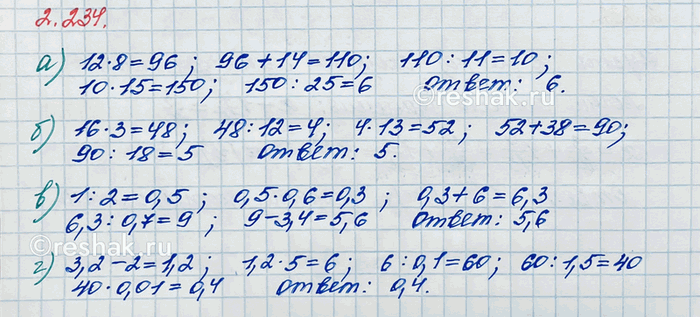 2.234.
а) 12·8=96; 96+14=110; 110:11=10;
10·15=150; 150:25=6 ответ: 6.
б) 16·3=48; 48:12=4; 4·13=52; 52+38=90;
90:18=5 ответ: 5.
в) 1:2=0,5; 0,5·0,6=0,3; 0,3+6=6,3
6,3:0,7=9; 9-3,4=5,6 ответ: 5,6
г) 3,2-2=1,2; 1,2·5=6; 6:0,1=60; 60:1,5=40
40·0,01=0,4 ответ: 0,4.
©reshak.ru
©reshak.ru